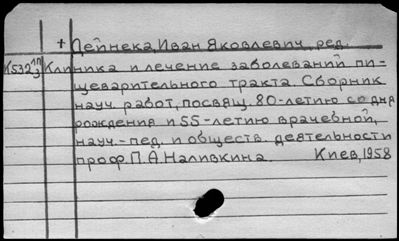 + Дейнека, Иван Яковлевич, ред.
К532 Клиника и лечение заболеваний пи-
щеварительного тракта. Сборник
науч. работ, посвящ. 80-летию со дня
рождения и 55-летию врачебной,
науч.-пед. и обществ. деятельности
проф. П.А. Наливкина. Киев, 1958